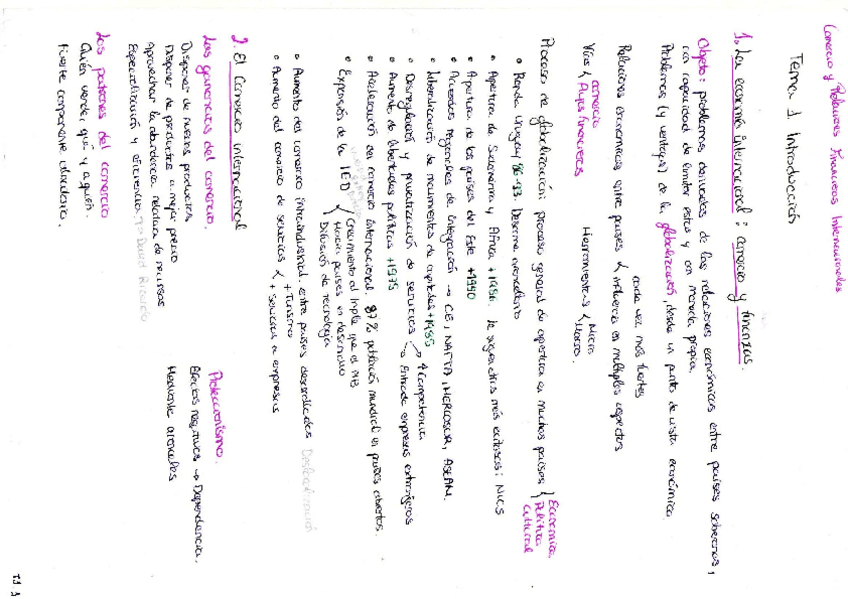 Comercio y Relaciones Financieras Internacionales
Tema 1 Introducción
1. La economía internacional: comercio y finanzas.
Objeto: problemas derivados de las relaciones económicas entre países soberanos,
con capacidad de emitir estos y con moneda propia.
Problemas (y ventajas) de la globalización, desde un punto de vista económico
Relaciones económicas entre países { cada vez más fuertes
influencia en múltiples aspectos
Vías { comercio
flujos financieros
Herramientas { Micro
Macro.
Proceso de globalización: proceso general de apertura en muchos países { Económica
Política
Cultural
• Ronda Uruguay 86-93. Desarme arancelario
• Apertura de Sudamérica y África +1980. le siguen otras más exitosas: NICS
• Apertura de los países del Este +1990
• Acuerdos regionales de integración → CE, NAFTA, MERCOSUR, ASEAN.
• Liberalización de movimientos de capitales +1985
• Desregulación y privatización de servicios → Competencia
→ Entrada empresas extranjeras
• Aumento de libertades políticas +1975
• Aceleración en comercio internacional. 87% población mundial en países abiertos.
• Expansión de la IED { Crecimiento al triple que el PIB
Hacia países en desarrollo
Difusión de tecnología
• Aumento del comercio intraindustrial. entre países desarrollados Deslocalización
• Aumento del comercio de servicios { + Turismo
+ Servicios a empresas
2. El Comercio internacional
Las ganancias del comercio.
Disponer de nuevos productos
Disponer de productos a mejor precio
Aprovechar la abundancia relativa de recursos
Especialización y eficiencia. → David Ricardo
Proteccionismo.
Efectos negativos → Dependencia.
Mediante aranceles
Los patrones del comercio
Quién vende, qué y a quién.
Fuerte componente aleatorio.